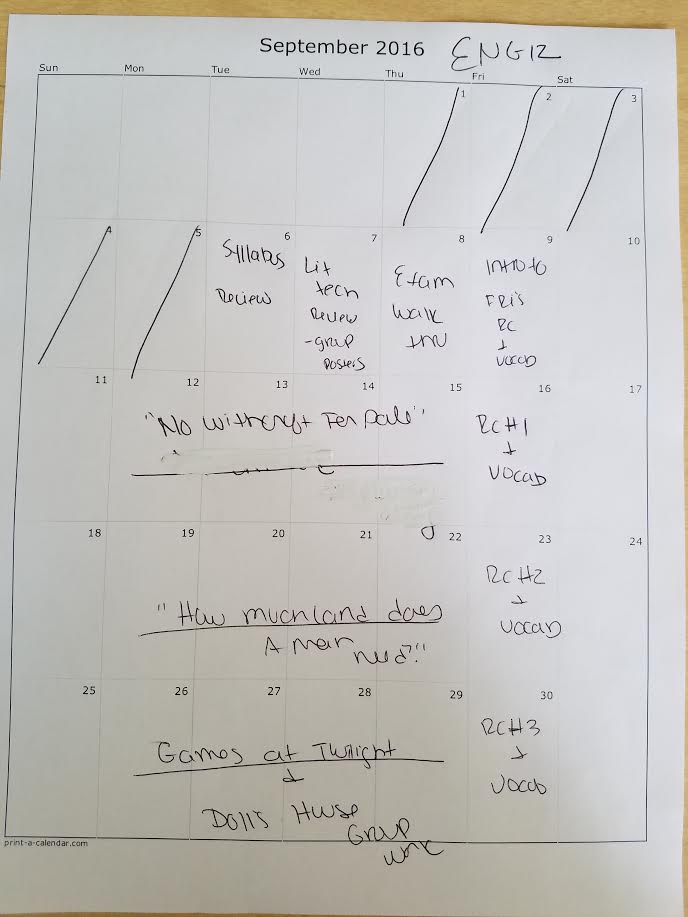 September 2016 ENG12
Sun Mon Tue Wed Thu Fri Sat
1 2 3
4 5 6 7 8 9 10
Syllabus
Review
Lit
tech
Review
-group
Posters
Exam
Walk
thru
Intro to
FRI's
RC
+
vocab
11 12 13 14 15 16 17
"No Witchcraft For Sale"
RC#1
+
vocab
18 19 20 21 22 23 24
"How much land does
A man
need?"
RC#2
+
vocab
25 26 27 28 29 30
Games at Twilight
+
Doll's House
Group
work
RC#3
+
vocab
print-a-calendar.com